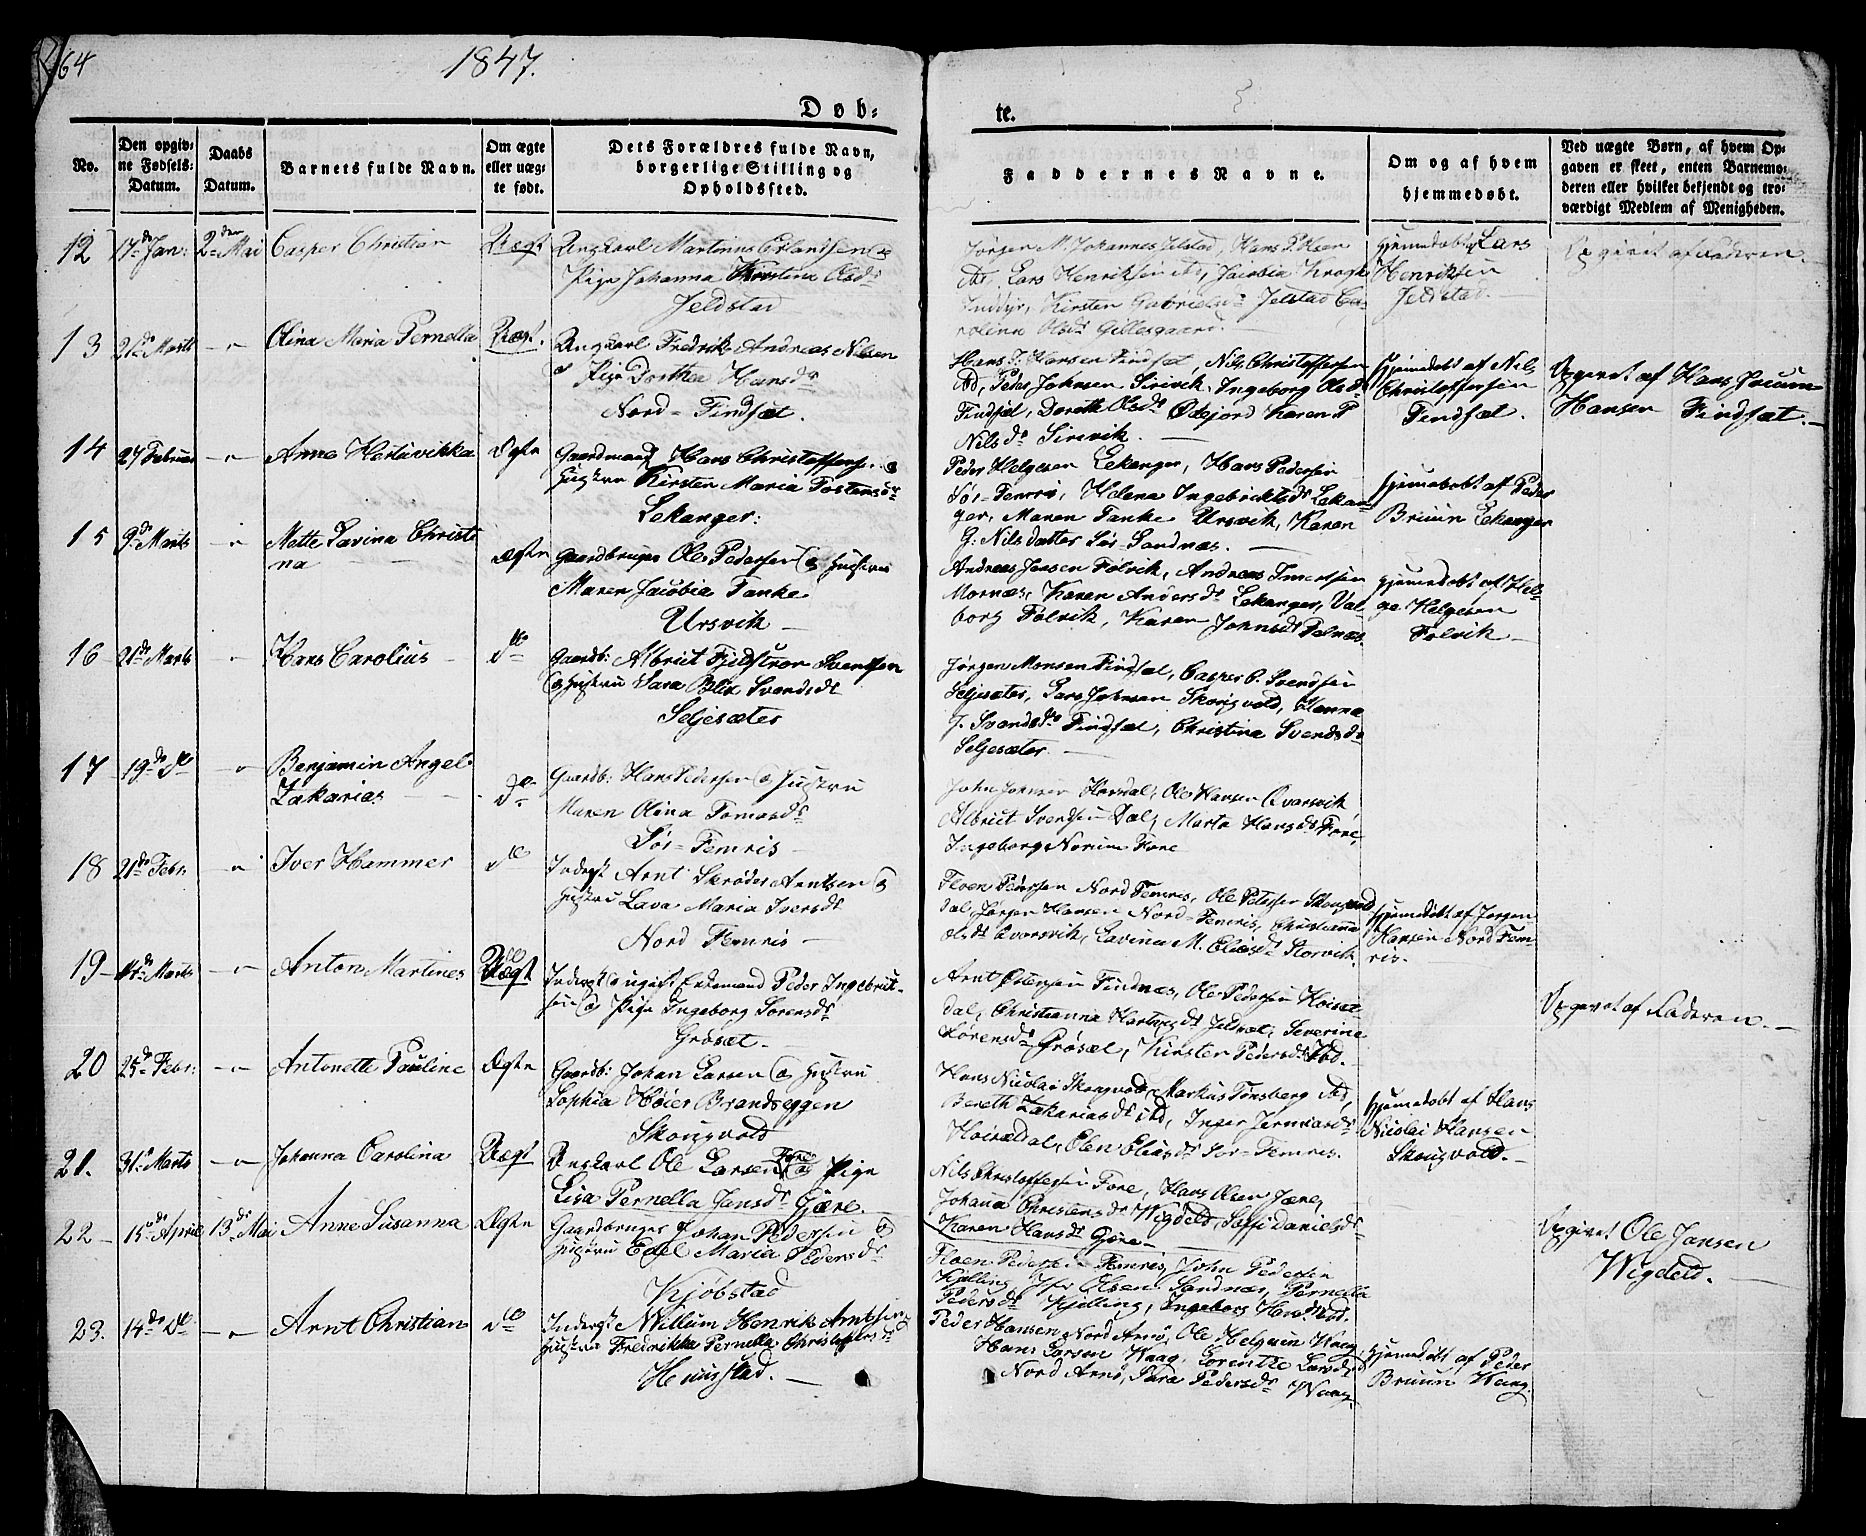 64
1847.
Døb-
te.
No.
Den opgiv-
ne Fødsels-
Datum.
Daabs
Datum.
Barnets fulde Navn.
Om ægte
eller uæg-
te født.
Dets Forældres fulde Navn,
borgerlige Stilling og
Opholdssted.
Faddernes Navne.
Om og af hvem
hjemmedøbt.
Ved uægte Børn, af hvem Op-
gaven er skeet, enten Barnemo-
deren eller hvilket bekjendt og tro-
værdigt Medlem af Menigheden.
12
17de Jan:
2den Mai
Casper Christian
Uægt
Ungkarl Martinus Edlandsen og
Pige Johanna Christina Olsdr
Jeldstad
Jørgen M. Johannes Jelstad, Hans P.
Lars Henriksen ibd, Jacobia Krogh
Inndyr, Kirsten Gabrielsdr Jelstad Ca-
rolina Olsdr Gillesgaard.
Hjemedøbt Lars
Henriksen
Jeldstad.
Opgivet af Faderen.
13
21de Marts
Olina Maria Pernella
Uægt.
Ungkarl Fredrik Andreas Nilsen
og Pige Dorthea Hansdr
Nord-Findsæt.
Hans J. Hansen Findsæt, Nils Christoffersen
ibd, Peder Johnsen Sirivik, Ingeborg Olsdr
Findsæt, Dorette Olsdr Øxfjord Karen P
Nilsdr Sirevik.
Hjemedøbt af Nils
Christoffersen
Findsæt.
Opgivet af Hans Joeum
Hansen Findsæt.
14
27 Februar
Anna Hartvikka
Ægte
Gaardmand Hans Christoffersen og
Hustru Kirsten Maria Tostensdr
Lekanger:
Peder Helgesen Lekanger, Hans Pedersen
Sør-Femris, Helena Ingebricktsdr Lekan-
ger, Maren Tanke Ursvik, Karen
G: Nilsdatter Sør-Sandnæs.
Hjemedøbt af Peder
Bruun Lekanger
15
9de Marts
Mette Lavina Christi-
na
Ægte
Gaardbruger Ole Pedersen og Hustru
Maren Jacobia Tanke
Ursvik
Andreas Jensen Følvik, Andreas Imertsen
Mornæs, Karen Andersdr Lekanger, Val-
borg Følvik, Karen Johnsdr
Hjemedøbt af Hel-
ge Helgesen
Følvik
16
21de Marts
Hans Carolius
do
Gaardb: Albriet Fjeldstrøm Svendsen
og Hustru Sara Blix Svendsdr
Seljesæter
Jørgen Monsen Findsæt, Casper C. Svendsen
Seljesæter, Lars Johnsen Skougvold, Hanna
J. Svendsdr Findsæt, Christina Svendsdr
Seljesæter.
17
19de do
Benjamin Angel
Zakarias
do
Gaardb: Hans Pedersen og Hustru
Maren Olina Tomasdr
Sør-Femris
John Johnsen Horsdal, Ole Hansen Qvarsvik
Albriet Svendsen Dal, Marta Hansdr Fore,
Ingeborg Norum Fore
18
21de Febr:
Iver Hammer
do
Inderst Arnt Skrøder Arntsen og
Hustru Lava Maria Iversdr
Nord Femris
Floen Pedersen Nord Femris, Ole Petersen Skougvold
dal, Jørgen Hansen Nord-Femris, Christianna
Olsdr Qvarsvik, Lavina M. Eliasdr Storvik.
Hjemedøbt af Jørgen
Hansen Nord Fem-
ris.
19
14de Marts
Anton Martines
Uægt
Inderst og ugift Enkemand Peder Ingebrit-
sen og Pige Ingeborg Sørensdr
Grøsæt.
Arnt Østensen Findnæs, Ole Pedersen Hoisæt-
dal, Christianna Hartvigsdr Jeldsæt, Severine
Sørensdr Grøsæt, Kirsten Pedersdr ibd.
Opgivet af Faderen.
20
25de Febr:
Antonette Pauline
Ægte
Gaardb: Johan Larsen og Hustru
Sophia Høier Brandseggen
Skougvold
Hans Nicolai Skougvold, Markus Tønsberg ibd,
Bereth Zakariasdr ibd, Inger
Hoisædal, Elen Eliasdr Sør-Femris.
Hjemedøbt af Hans
Nicolai Hansen
Skougvold.
21.
31te Marts
Johanna Carolina
Uægt
Ungkarl Ole Larsen Fore og Pige
Lisa Pernella Jansdr Gjære
Nils Christoffersen Fore, Hans Olsen Jære,
Johanna Christensdr Wigdeld, Soffi Danielsdr
Karen Hansdr Gjære
Opgivet Ole Jansen
Wigdeld.
22
15de April
13de Mai
Anne Susanna
Ægte
Gaardbruger Johan Pedersen og
Hustru Edel Maria Pedersdr
Kjøbstad
Floen Pedersen Femris, John Pedersen
Kjelling, Iver Olsen Sandnæs, Pernella
Pedersdr Kjelling, Ingeborg
23.
14de do
Arnt Christian
do
Inderst Willum Henrik Arntsen og
Hustru Fredrikka Pernella Christoffersdr
Huusstad.
Peder Hansen Nord Arnø, Ole Helgesen Waag
Hans Larsen Waag, Lorentze Larsdr
Nord Arnø, Sara Pedersdr Waag
Hjemedøbt af Peder
Bruun Waag.